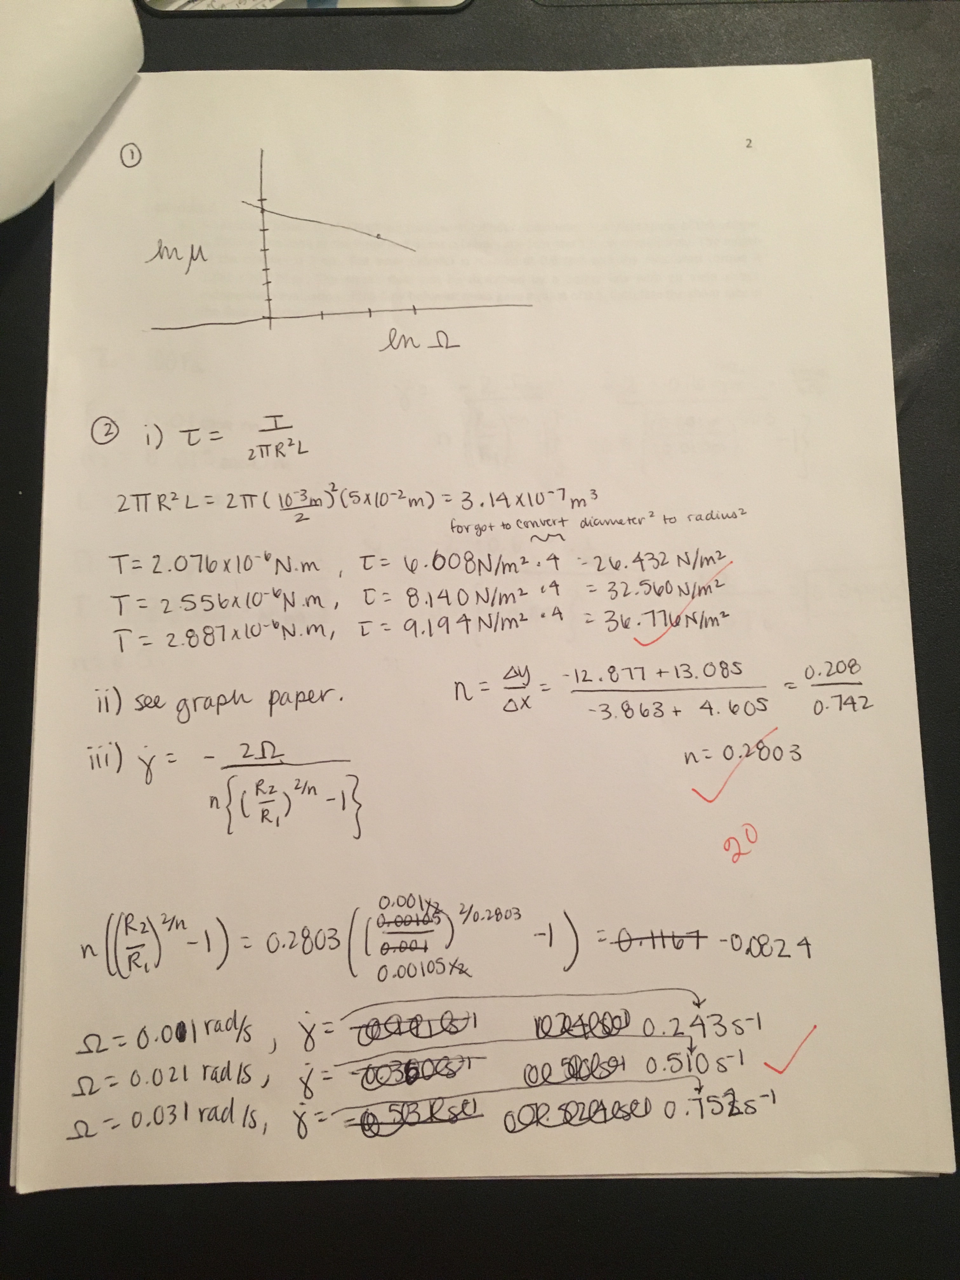 2
①
ln μ
ln Ω
② i) τ = T / 2πR²L
2πR²L = 2π(10⁻³m/2)²(5x10⁻²m) = 3.14x10⁻⁷m³
forgot to convert diameter² to radius²
T = 2.076x10⁻⁶N.m, τ = 6.608N/m² · 4 = 26.432 N/m²
T = 2.556x10⁻⁶N.m, τ = 8.140N/m² · 4 = 32.560N/m²
T = 2.887x10⁻⁶N.m, τ = 9.194N/m² · 4 = 36.776N/m²
ii) see graph paper.
n = Δy/Δx = (-12.877 + 13.085)/(-3.863 + 4.605) = 0.208/0.742
n = 0.2803
iii) γ̇ = - 2Ω / n{(R2/R1)^2/n - 1}
20
n((R2/R1)^2/n - 1) = 0.2803((0.001x2 0.00105/0.001 0.00105x2)^2/0.2803 - 1) = 0.1167 -0.0824
Ω = 0.001 rad/s, γ̇ = 0.243s-1
Ω = 0.021 rad/s, γ̇ = 0.510s-1
Ω = 0.031 rad/s, γ̇ = 0.752s-1